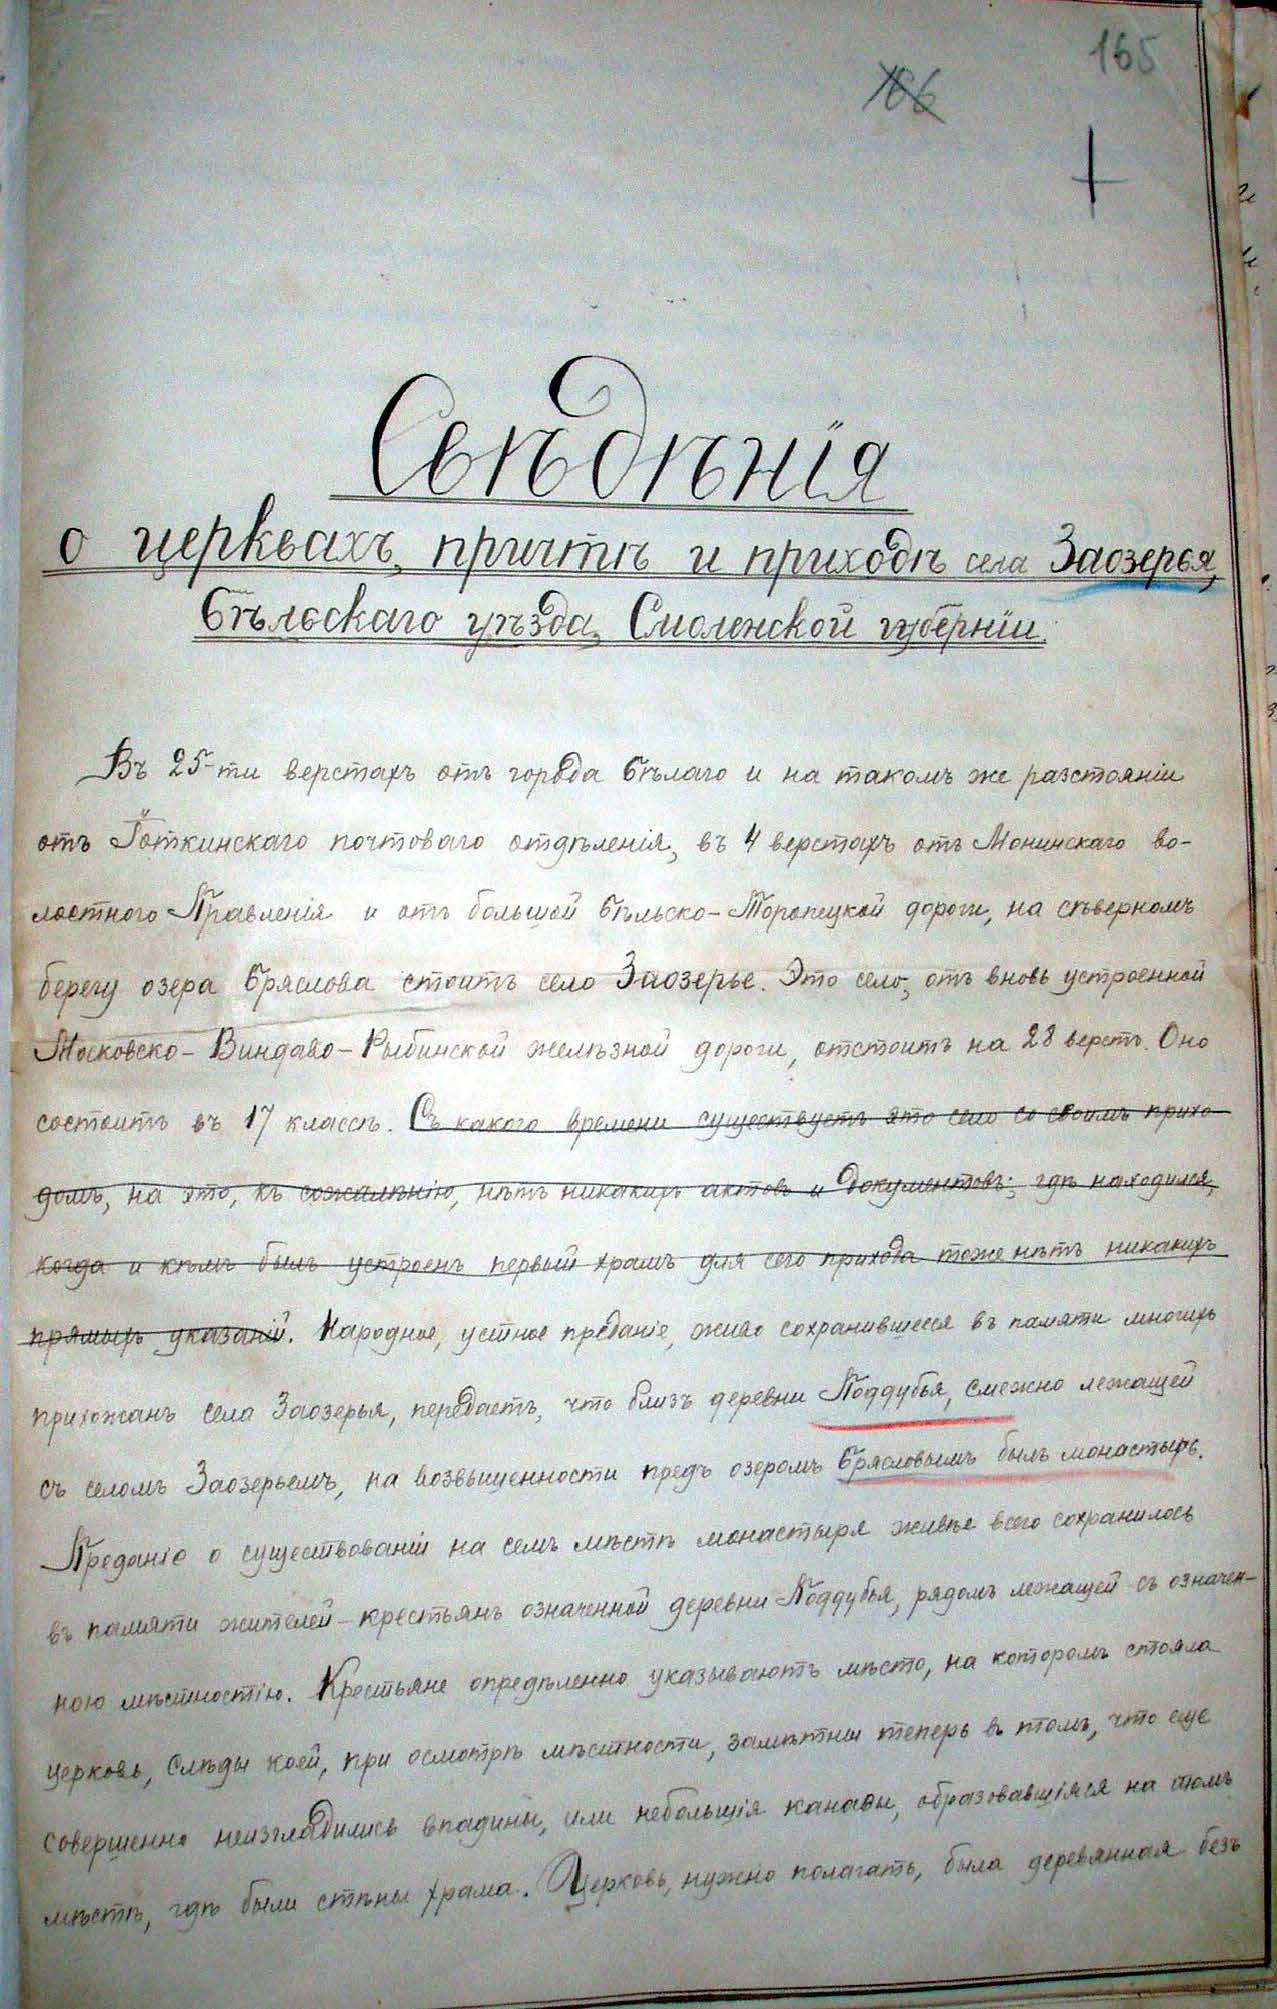 165
166
Свѣдѣнія
о церквахъ, причтѣ и приходѣ села Заозерья,
Бѣльскаго уѣзда, Смоленской губерніи.
Въ 25-ти верстахъ отъ города Бѣлаго и на такомъ же разстояніи
отъ Готкинскаго почтоваго отдѣленія, въ 4 верстахъ отъ Монинскаго во-
лостного Правленія и отъ большой Бѣльско-Торопецкой дороги, на сѣверномъ
берегу озера Бряслова стоитъ село Заозерье. Это село, отъ вновь устроенной
Московско-Виндаво-Рыбинской желѣзной дороги, отстоитъ на 28 верстъ. Оно
состоитъ въ 17 классѣ. Съ какого времени существуетъ это село со своимъ прихо
домъ, на это, къ сожалѣнію, нѣтъ никакихъ актовъ и документовъ; гдѣ находился,
когда и кѣмъ былъ устроенъ первый храмъ для сего прихода тоже нѣтъ никакихъ
прямыхъ указаній. Народное, устное преданіе, живо сохранившееся въ памяти многихъ
прихожанъ села Заозерья, передаетъ, что близъ деревни Поддубья, смежно лежащей
съ селомъ Заозерьемъ, на возвышенности предъ озеромъ Брясловымъ былъ монастырь.
Преданіе о существованіи на семъ мѣстѣ монастыря живѣе всего сохранилось
въ памяти жителей-крестьянъ означенной деревни Поддубья, рядомъ лежащей съ означен-
ною мѣстностію. Крестьяне опредѣленно указываютъ мѣсто, на которомъ стояла
церковь, слѣды коей, при осмотрѣ мѣстности, замѣтны теперь въ томъ, что еще
совершенно неизгладились впадины, или небольшія канавы, образовавшіяся на томъ
мѣстѣ, гдѣ были стѣны храма. Церковь, нужно полагать, была деревянная безъ